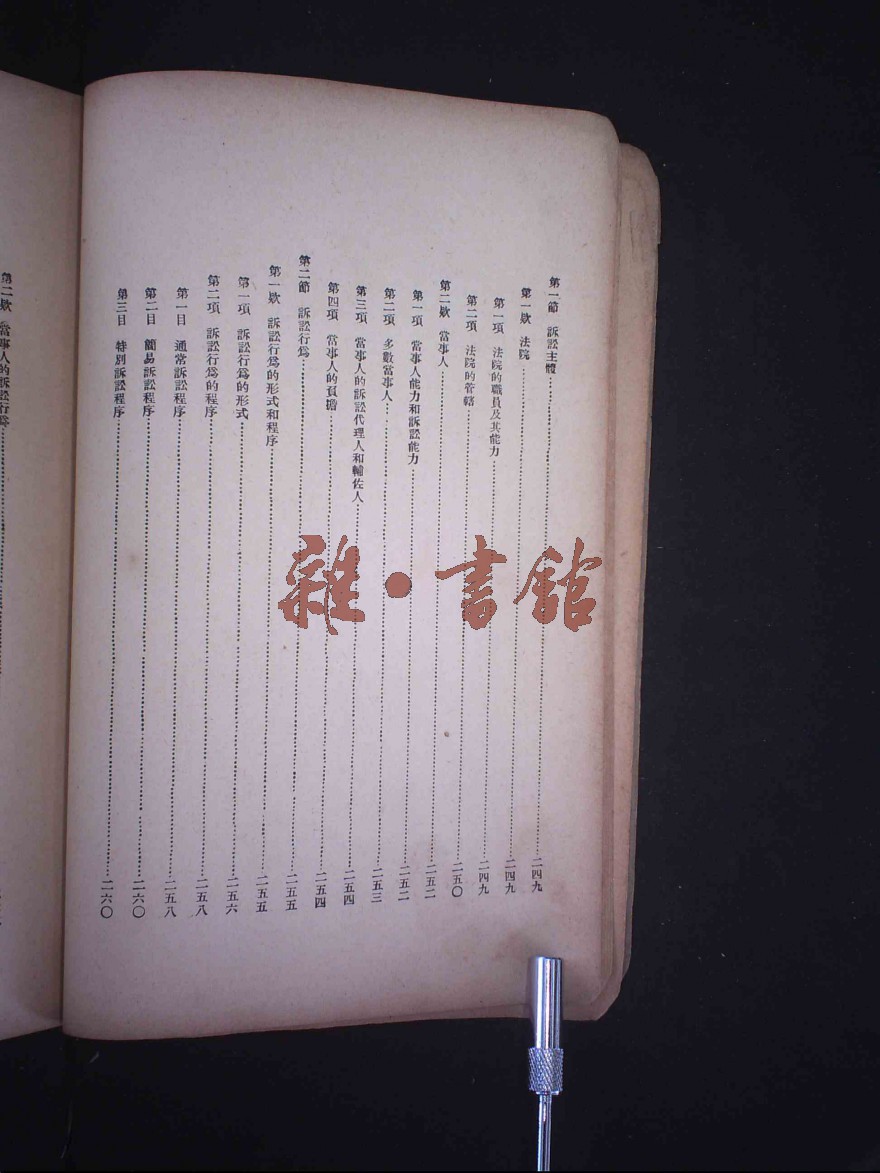 第一節　訴訟主體…………二四九
第一欵　法院…………二四九
第一項　法院的職員及其能力…………二四九
第二項　法院的管轄…………二五〇
第二欵　當事人…………二五二
第一項　當事人能力和訴訟能力…………二五二
第二項　多數當事人…………二五三
第三項　當事人的訴訟代理人和輔佐人…………二五四
第四項　當事人的負擔…………二五四
第二節　訴訟行爲…………二五五
第一欵　訴訟行爲的形式和程序…………二五五
第一項　訴訟行爲的形式…………二五六
第二項　訴訟行爲的程序…………二五八
第一目　通常訴訟程序…………二五八
第二目　簡易訴訟程序…………二六〇
第三目　特別訴訟程序…………二六〇
第二欵　當事人的訴訟行爲…………
雜・書館